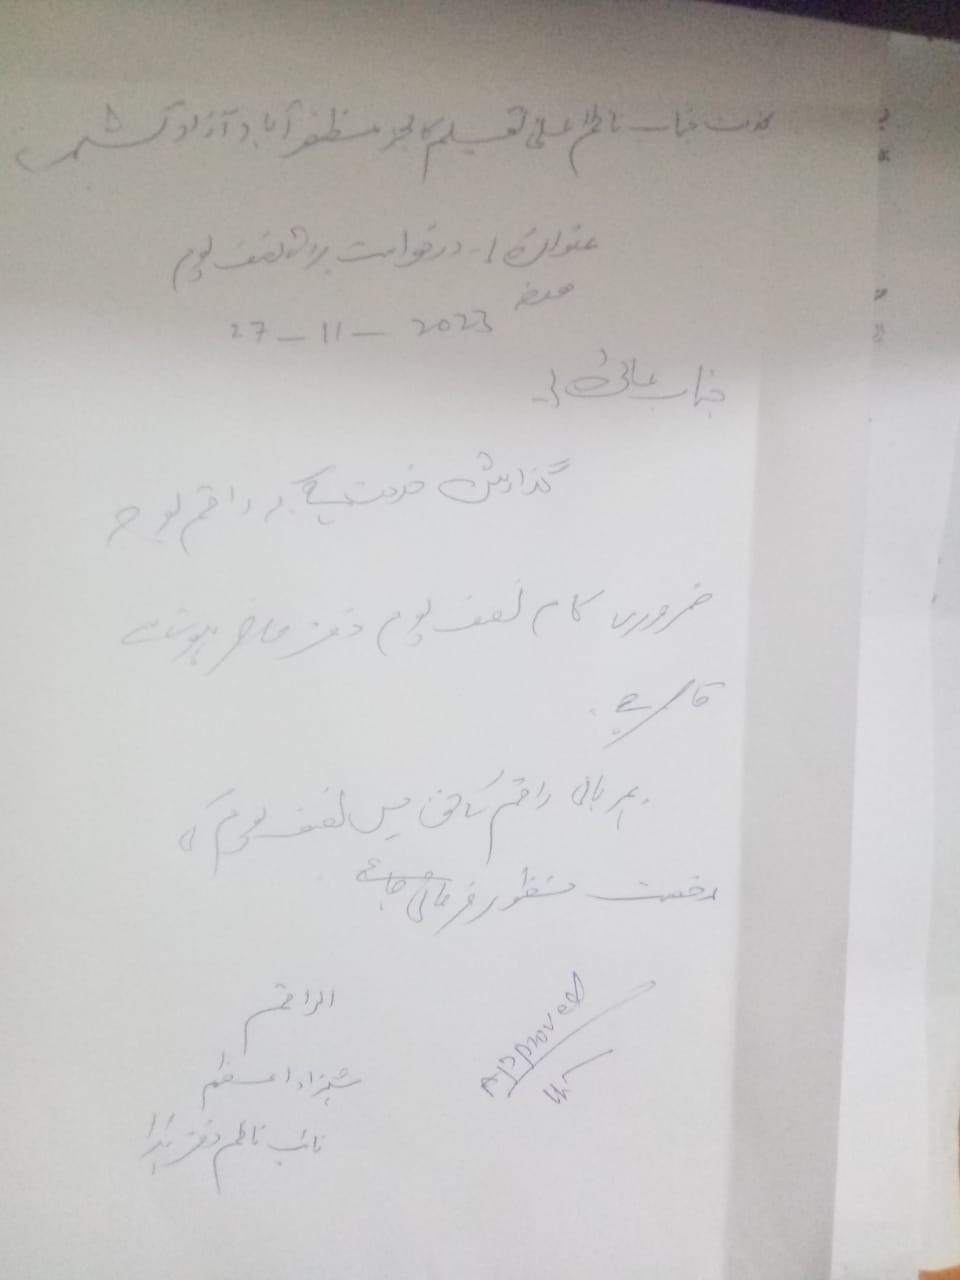 بخدمت جناب ناظم اعلیٰ تعلیم کالجز مظفر آباد آزاد کشمیر
عنوان :- درخواست برائے نصف یوم
مورخہ
27-11-2023
جناب عالی :-
گذارش خدمت ہے کہ راقم بوجہ
ضروری کام نصف یوم دفتر حاضر ہونے سے
قاصر ہے۔
مہربانی راقم کے حق میں نصف یوم کی
رخصت منظور فرمائی جائے
الراقم
شہزاد اعظم
نائب ناظم دفتر ہذا
Approved